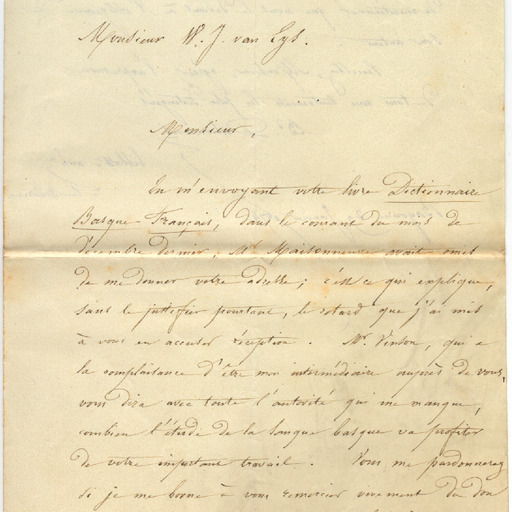 Monsieur W. J. van Eys.
Monsieur,
En m'envoyant votre livre Dictionnaire
Basque-Français, dans le courant du mois de
décembre dernier, Mr. Maisonneuve avait omis
de me donner votre adresse; c'est ce qui explique,
sans le justifier pourtant, le retard que j'ai mis
à vous en accuser réception. Mr. Vinson, qui a
la complaisance d'être mon intermédiaire auprès de vous,
vous dira avec toute l'autorité qui me manque,
combien l'étude de la langue basque va profiter
de votre important travail. Vous me pardonnerez
si je me borne à vous remercier vivement du don